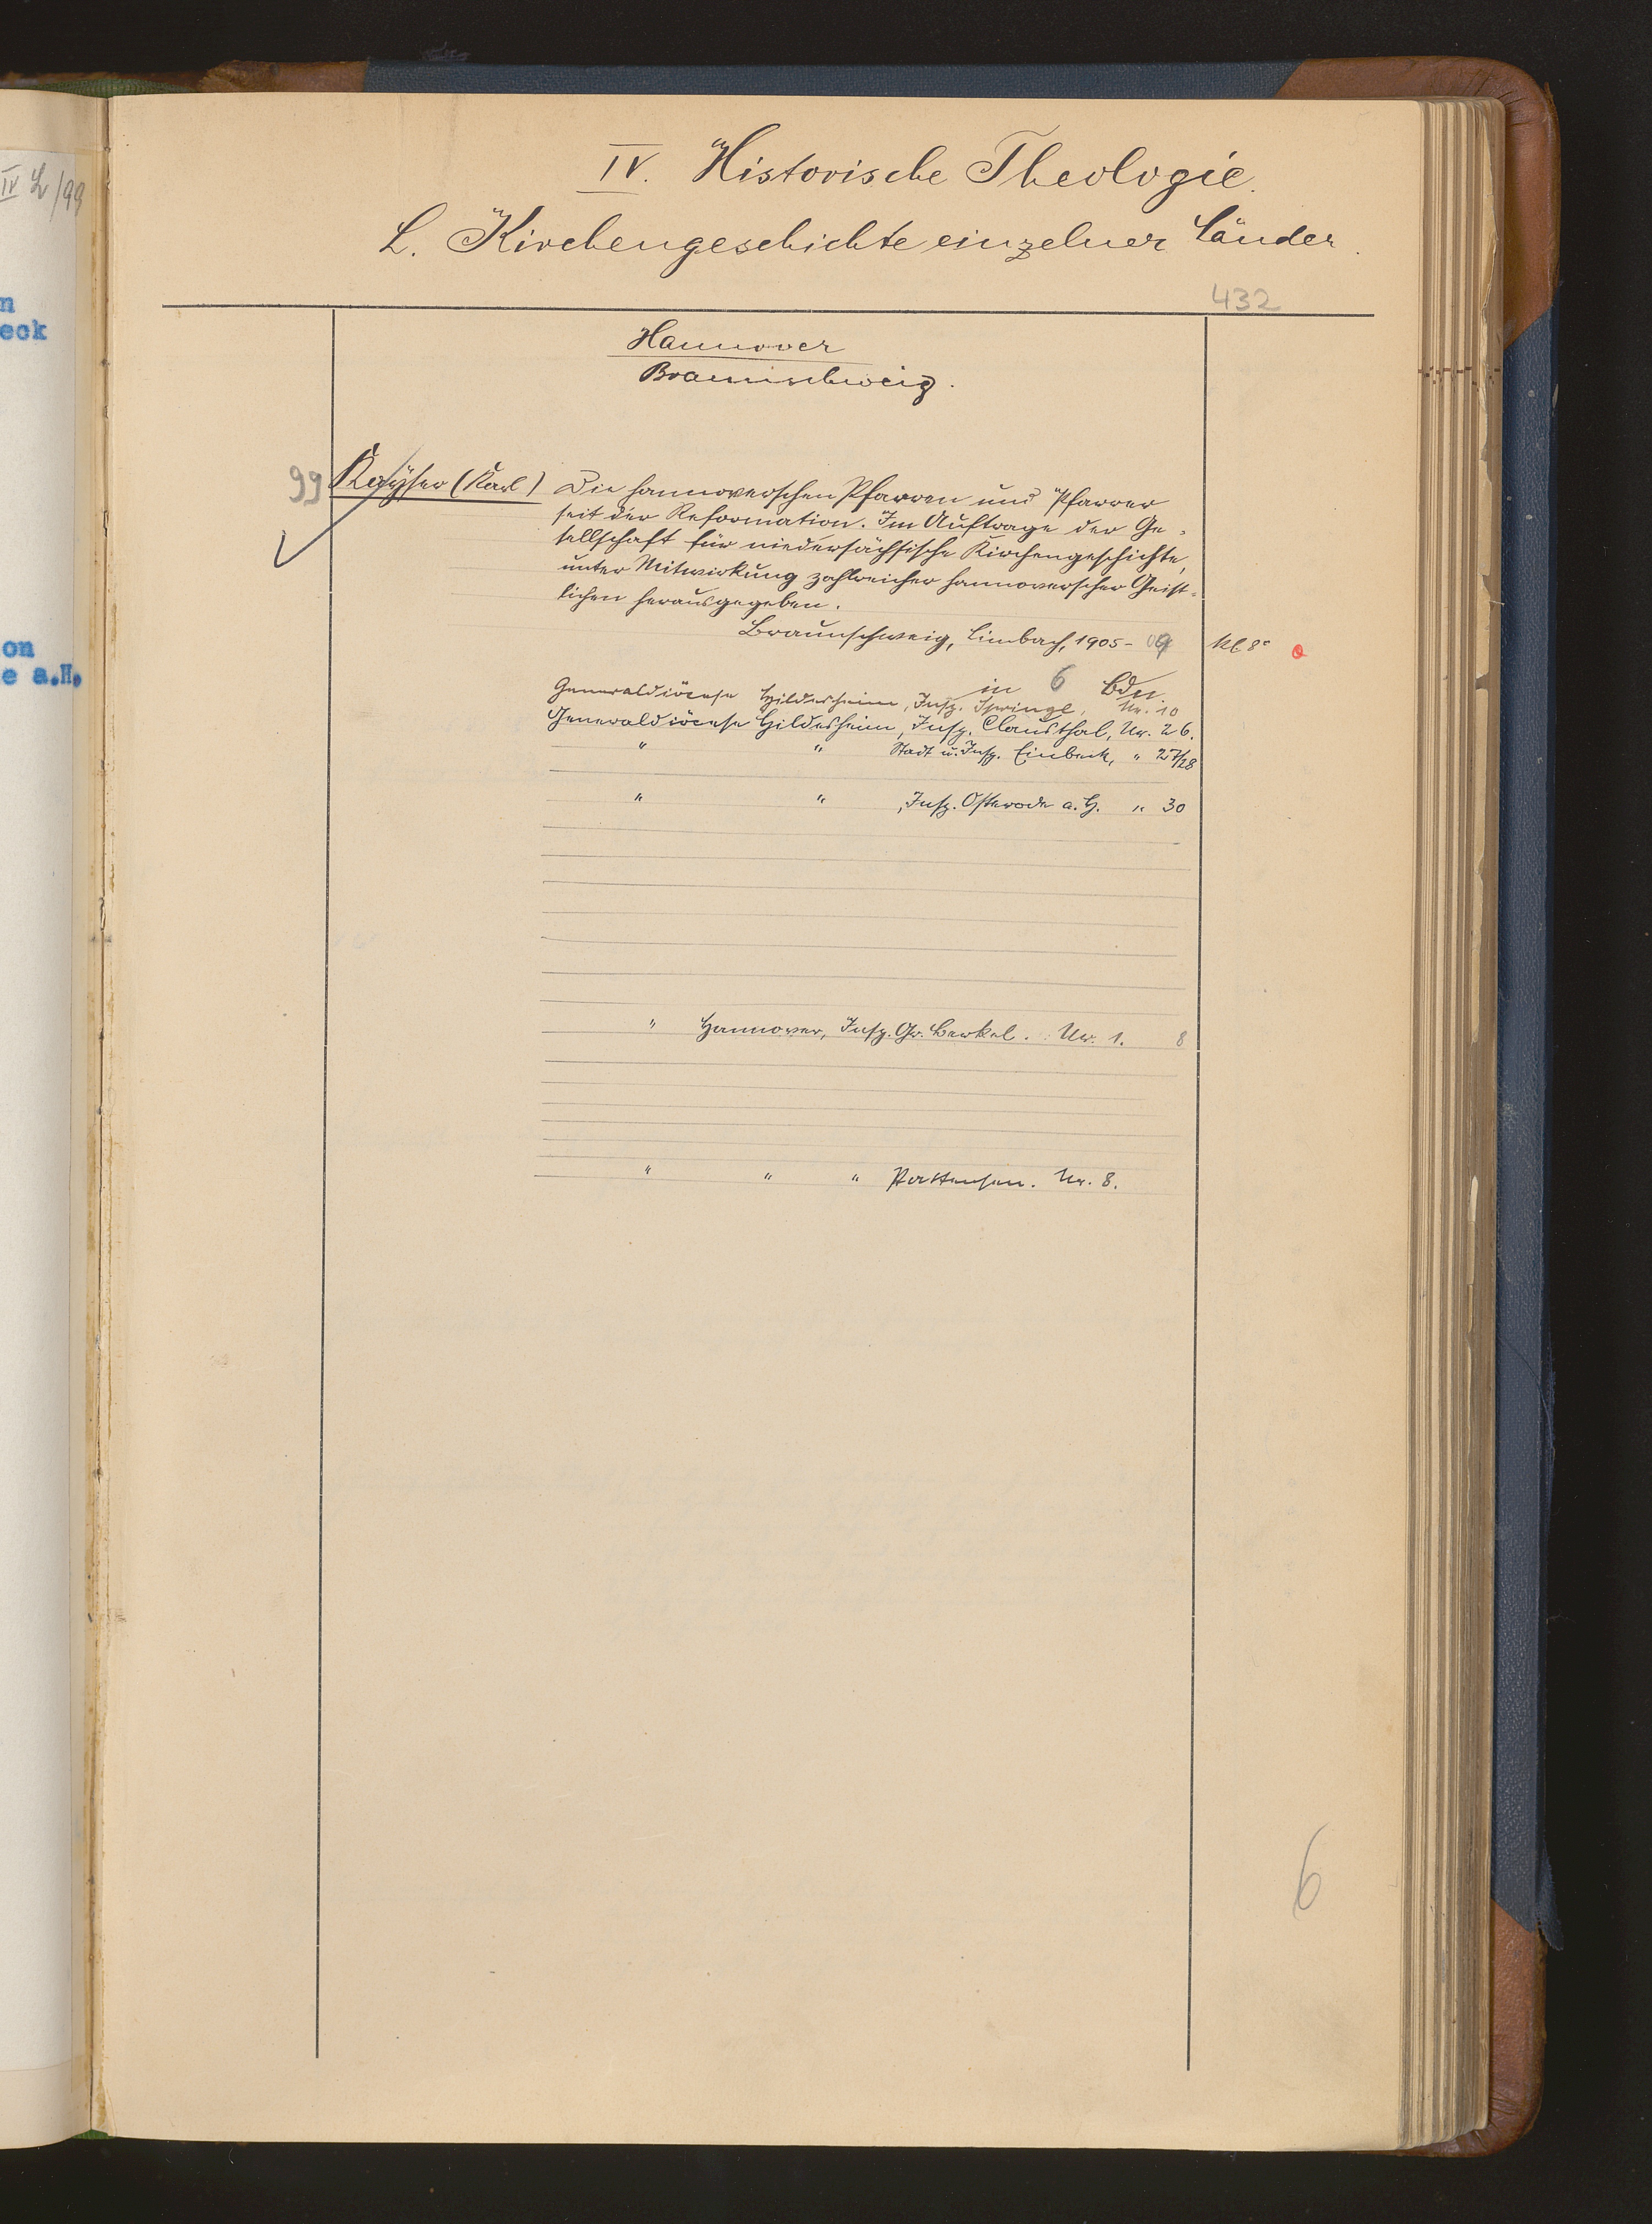 IV L/99
n
eck
on
e a.H.
IV. Historische Theologie.
L. Kirchengeschichte einzelner Länder.
432
Hannover
Braunschweig.
99 Kayser (Karl) Die hannoverschen Pfarren und Pfarrer
seit der Reformation. Im Auftrage der Ge-
sellschaft für niedersächsische Kirchengeschichte,
unter Mitwirkung zahlreicher hannoverscher Geist-
lichen herausgegeben.
Braunschweig, Limbach, 1905-09 kl 8°
in 6 Bdn.
Generaldiözese Hildesheim, Insp. Springe, Nr. 10
Generaldiözese Hildesheim, Insp. Clausthal, Nr. 26.
" " Stadt u. Insp. Einbeck, " 27/28
" " , Insp. Osterode a. H. " 30
" Hannover, Insp. Gr. Berkel. Nr. 1. 8
" " " Pattensen. Nr. 8.
6